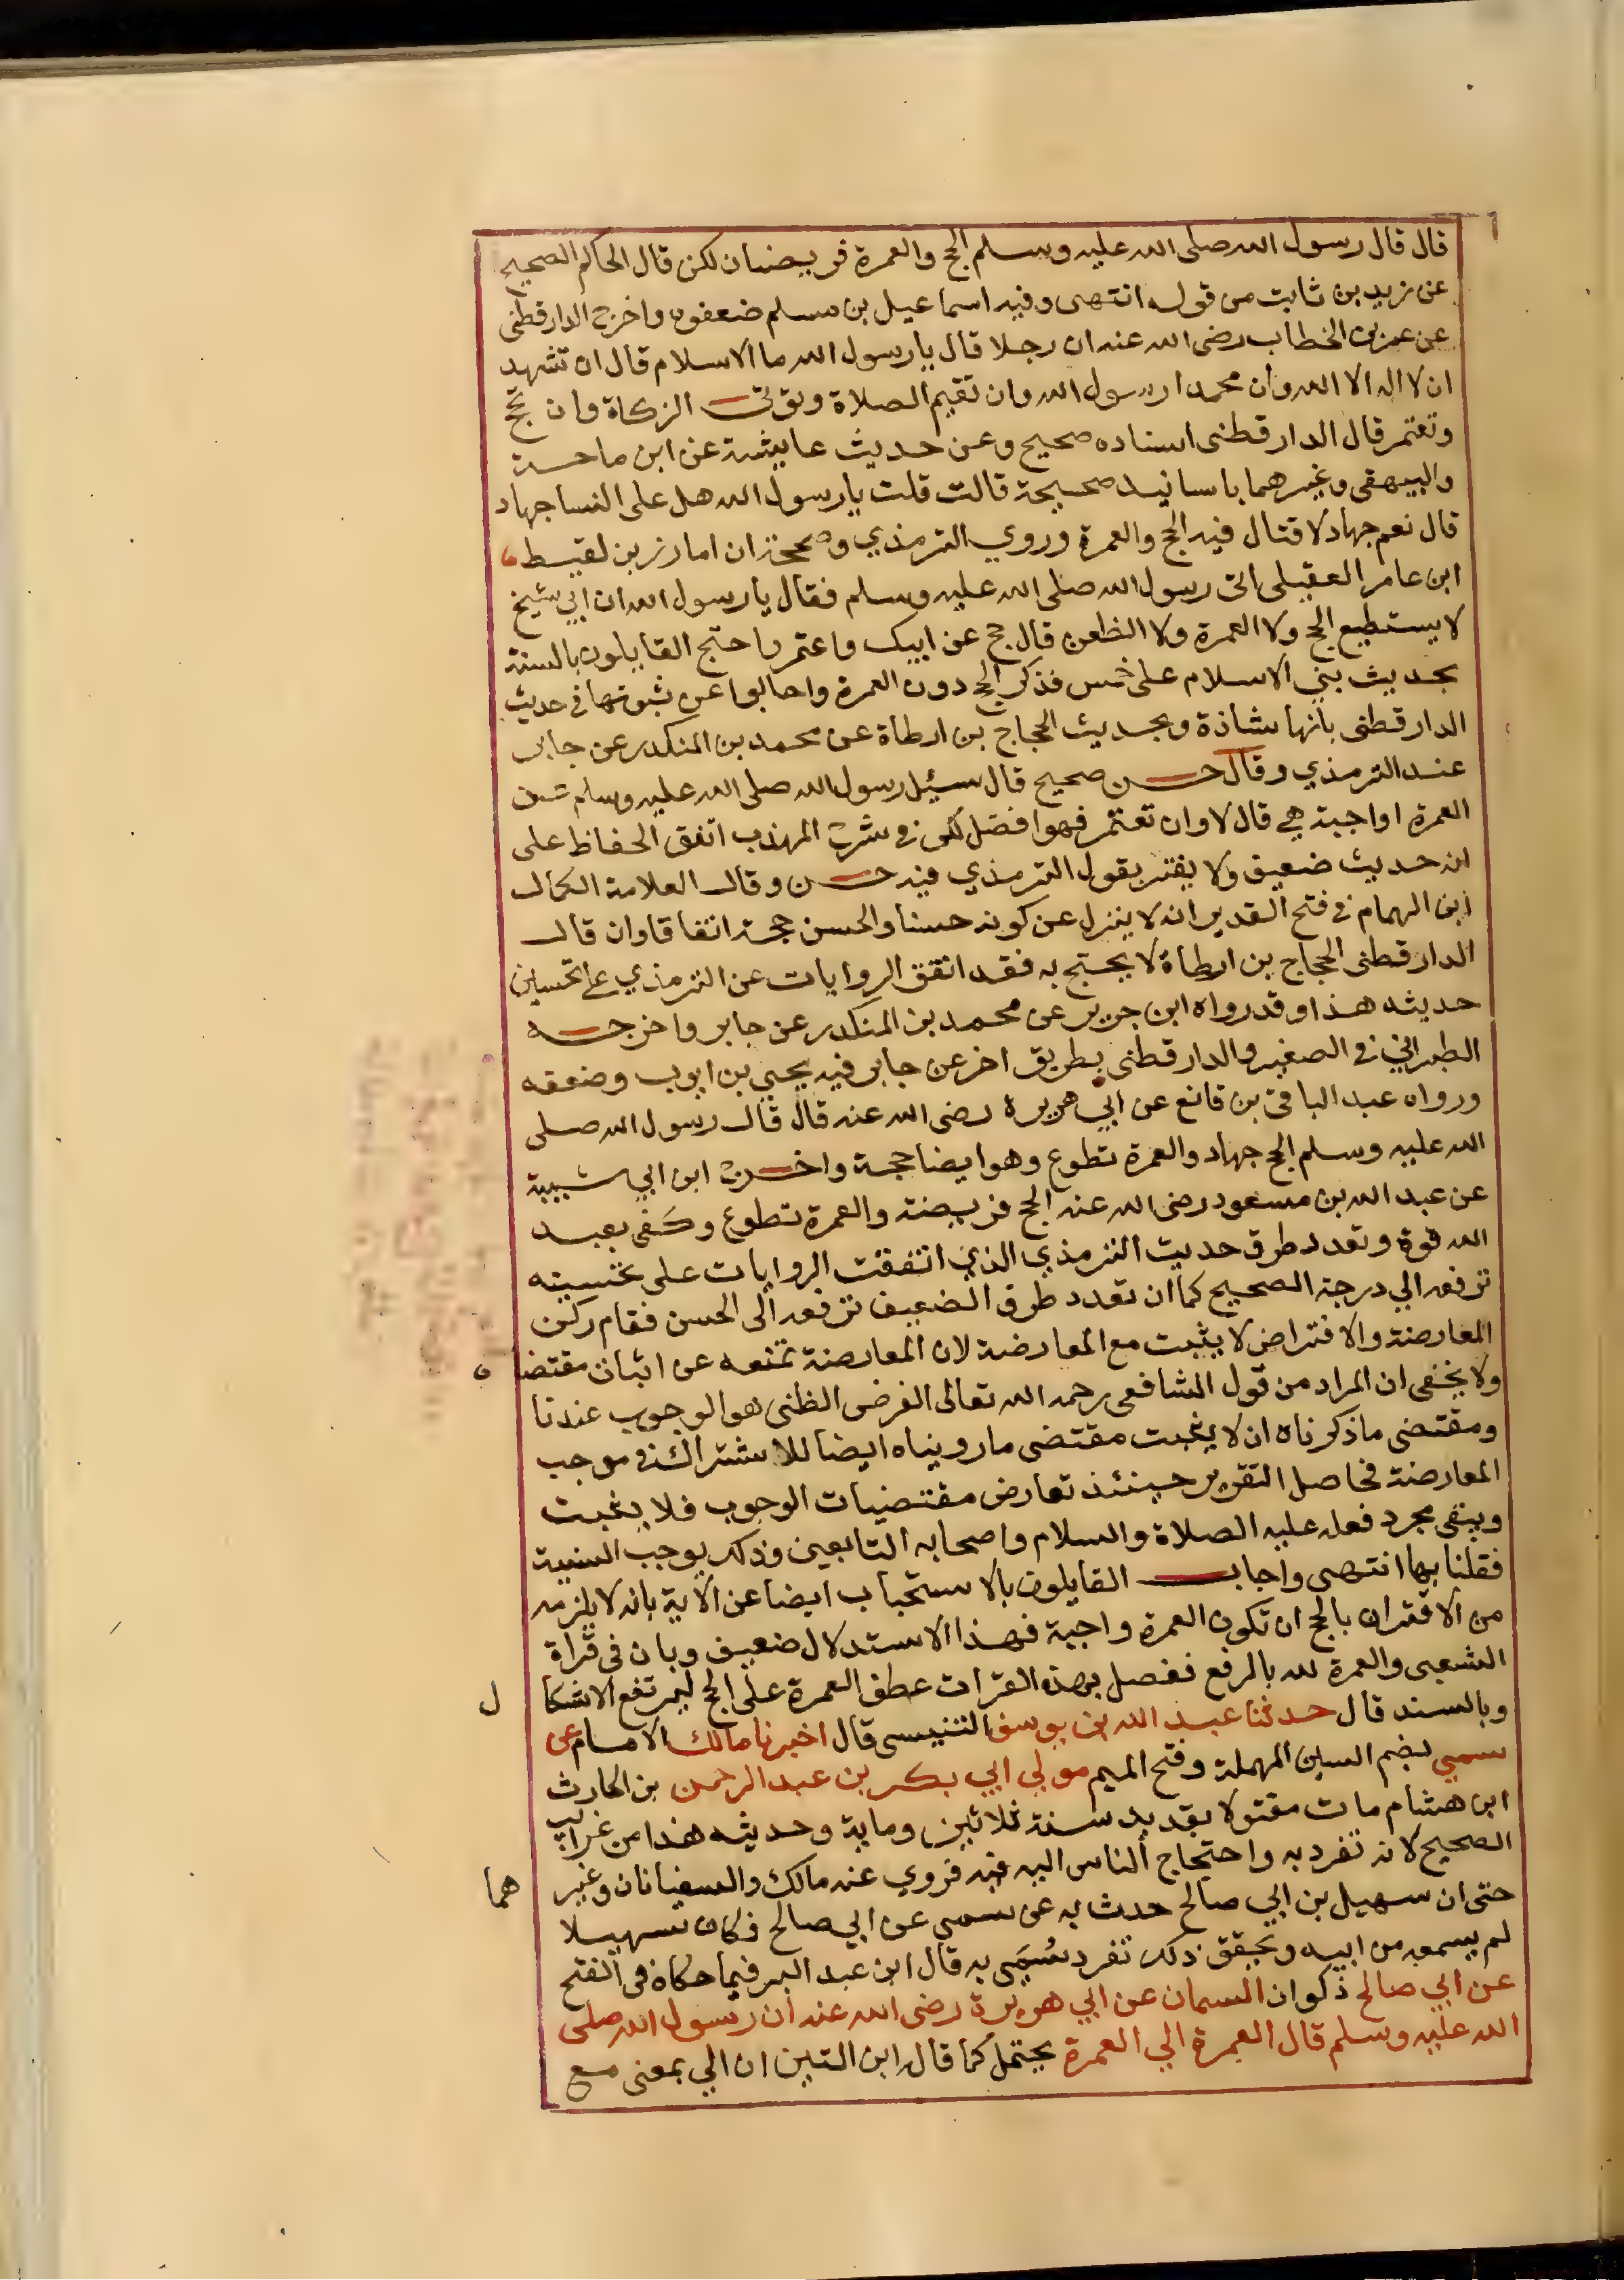 قال قال رسول الله صلى الله عليه وسلم الحج والعمرة فريضتان لكن قال الحاكم الصحيح
عن زيد بن ثابت من قوله انتهى وفيه اسماعيل بن مسلم ضعفوه واخرج الدارقطنى
عن عمر بن الخطاب رضى الله عنه ان رجلا قال يا رسول الله ما الاسلام قال ان تشهد
ان لا اله الا الله وان محمدا رسول الله وان تقيم الصلاة وتؤتى الزكاة وان تحج
وتعتمر قال الدارقطنى اسناده صحيح وعن حديث عايشة عن ابن ماجة
والبيهقى وغيرهما باسانيد صحيحة قالت قلت يا رسول الله هل على النسا جهاد
قال نعم جهاد لا قتال فيه الحج والعمرة وروي الترمذي وصححه ان ابا رزين لقيط
ابن عامر العقيلى اتى رسول الله صلى الله عليه وسلم فقال يا رسول الله ان ابي شيخ
لا يستطيع الحج ولا العمرة ولا الظعن قال حج عن ابيك واعتمر واحتج القايلون بالسنة
بحديث بني الاسلام على خمس فذكر الحج دون العمرة واجابوا عن ثبوتها في حديث
الدارقطنى بانها شاذة وبحديث الحجاج بن ارطاة عن محمد بن المنكدر عن جابر
عند الترمذي وقال حسن صحيح قال سئل رسول الله صلى الله عليه وسلم عن
العمرة اواجبة هي قال لا وان تعتمر فهو افضل لكن في شرح المهذب اتفق الحفاظ على
انه حديث ضعيف ولا يغتر بقول الترمذي فيه حسن وقال العلامة الكمال
ابن الهمام في فتح القدير انه لا ينزل عن كونه حسنا والحسن حجة اتفاقا وان قال
الدارقطنى الحجاج بن ارطاة لا يحتج به فقد اتفق الروايات عن الترمذي على تحسين
حديثه هذا وقد رواه ابن جريج عن محمد بن المنكدر عن جابر واخرجه
الطبراني في الصغير والدارقطنى بطريق اخر عن جابر فيه يحيى بن ايوب وضعفه
ورواه عبد الباقى بن قانع عن ابي هريرة رضى الله عنه قال قال رسول الله صلى
الله عليه وسلم الحج جهاد والعمرة تطوع وهو ايضا حجة واخرج ابن ابي شيبة
عن عبد الله بن مسعود رضى الله عنه الحج فريضة والعمرة تطوع وكفى بعبد
الله قوة وتعدد طرق حديث الترمذي الذي اتفقت الروايات على تحسينه
ترفعه الي درجة الصحيح كما ان تعدد طرق الضعيف ترفعه الى الحسن فقام ركن
المعارضة والافتراض لا يثبت مع المعارضة لان المعارضة تمنعه عن اثبات مقتضاه
ولا يخفى ان المراد من قول الشافعى رحمه الله تعالى الفرض الظنى هو الوجوب عندنا
ومقتضى ما ذكرناه ان لا يثبت مقتضى ما رويناه ايضا للاشتراك في موجب
المعارضة فحاصل التقرير حينئذ تعارض مقتضيات الوجوب فلا يثبت
ويبقى مجرد فعله عليه الصلاة والسلام واصحابه التابعين وذلك يوجب السنية
فقلنا بها انتهى واجاب القايلون بالاستحباب ايضا عن الاية بانه لا يلزم
من الاقتران بالحج ان تكون العمرة واجبة فهذا الاستدلال ضعيف وبان في قراة
الشعبى والعمرة لله بالرفع ففصل بهذه القرات عطف العمرة على الحج ليرتفع الاشكال
وبالسند قال حدثنا عبد الله بن يوسف التنيسى قال اخبرنا مالك الامام عن
سمي بضم السين المهملة وفتح الميم مولي ابي بكر بن عبد الرحمن بن الحارث
ابن هشام مات مقتولا بقديد سنة ثلاثين ومايه وحديثه هذا من غرايب
الصحيح لانه تفرد به واحتاج الناس اليه فيه فروي عنه مالك والسفيانان وغيرهما
حتى ان سهيل بن ابي صالح حدث به عن سمى عن ابي صالح فكان سهيلا
لم يسمعه من ابيه وتحقق ذلك تفرد سُمَى به قال ابن عبد البر فيما حكاه فى الفتح
عن ابي صالح ذكوان السمان عن ابي هريرة رضى الله عنه ان رسول الله صلى
الله عليه وسلم قال العمرة الي العمرة يحتمل كما قال ابن التين ان الي بمعنى مع